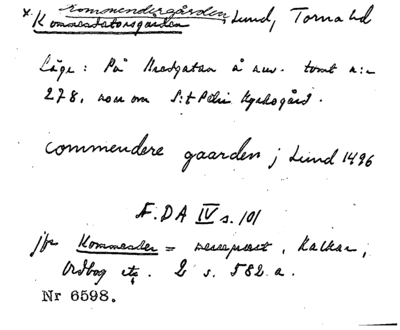 x. Kommendergården,
Kommendatorsgarden Lund, Torna hd
Läge: På Bredgatan å nuv. tomt n:r
278, norr om S:t Petri Kyrkogård.
commendere gaarden j Lund 1496
Æ.DA IV s. 101
jfr Kommender = messeprest, Kalkar,
Ordbog etc. 2 s. 582 a.
Nr 6598.